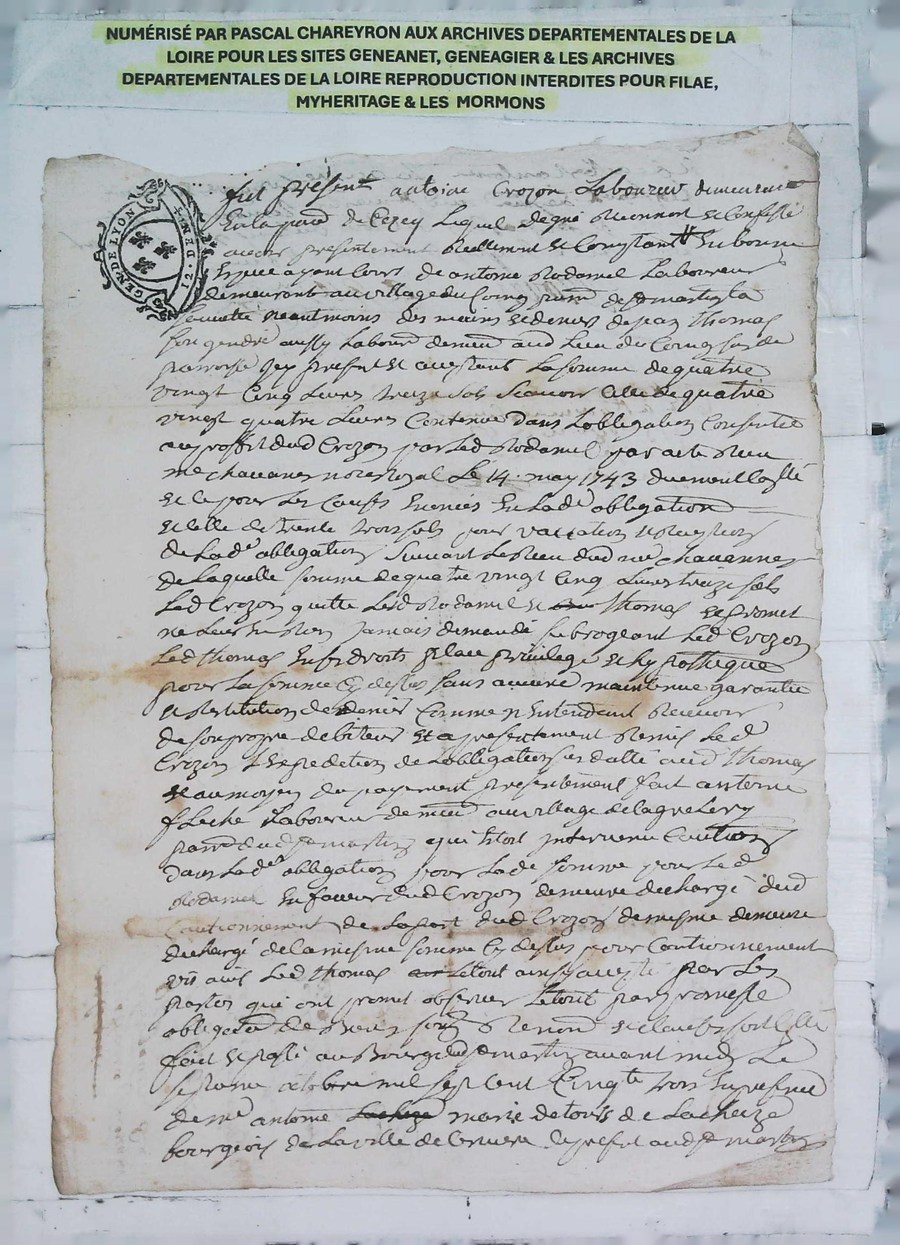 NUMÉRISÉ PAR PASCAL CHAREYRON AUX ARCHIVES DEPARTEMENTALES DE LA
LOIRE POUR LES SITES GENEANET, GENEAGIER & LES ARCHIVES
DEPARTEMENTALES DE LA LOIRE REPRODUCTION INTERDITES POUR FILAE,
MYHERITAGE & LES MORMONS
GEN. DE LYON
12. DEN
fut present antoine Crozon Laboureur demeurant
de Cezey Lequel de gré reconnoit et Confesse
presentement reellement et Comptant en bonne
espece ayant Cours de antoine Rodamel Laboureur
demeurant au village du Coing de st martin la
sauveté neantmoins des mains et deniers de jean Thomas
son gendre aussy Labour demeu aud Lieu du Coing susde
parroisse icy present et aceptant La somme de quatre
vingt Cinq Livres treize sols scavoir Celle de quatre
vingt quatre Livres Contenue dans Lobligation Consentie
au proffit dud Crozon par Led Rodamel par acte receu
me chauanes no.re Royal Le 14 may 1743
et ce pour Les Causes en Lad.e obligation
et celle de trente trois sols pour vaccation
de Lad.e obligation suivant Le receu dud me chauannes
de Laquelle somme de quatre vingt Cinq Livres treize sols
Led Crozon quitte Lesd Rodamel et Thomas et promet
ne Leur en rien jamais demandé subrogeant Led Crozon
Led thomas en ses droits place privilege et hypotheque
pour La somme Cy dessus sans aucune maintenue garantie
restitution de deniers Comme pretendant recevoir
de son propre debiteur et a presentement remis Led
Crozon Lexpedition de Lobligation sus dattée aud Thomas
et au moyen du payement presentement fait antoine
Laboureur demeu au village de
parr dud st martin qui Etoit intervenu Caution
dans Lad.e obligation pour Lad.e somme pour Led
Rodamel en faveur dud Crozon demeure dechargé dud
Cautionnement de La part dud Crozon demesme demeure
dechargé de la mesme somme Cy dessus pour Cautionnement
vis avis Led thomas Le tout ainsy par Les
parties qui ont promit observer Le tout par promesse
obligation de biens renon et clauses
fait et passé au Bourg dud st martin avant midy Le
octobre mil sept cent Cinqte trois en presence
de me antoine marie de tours de La cheize
bourgeois de La ville de present aud st martin